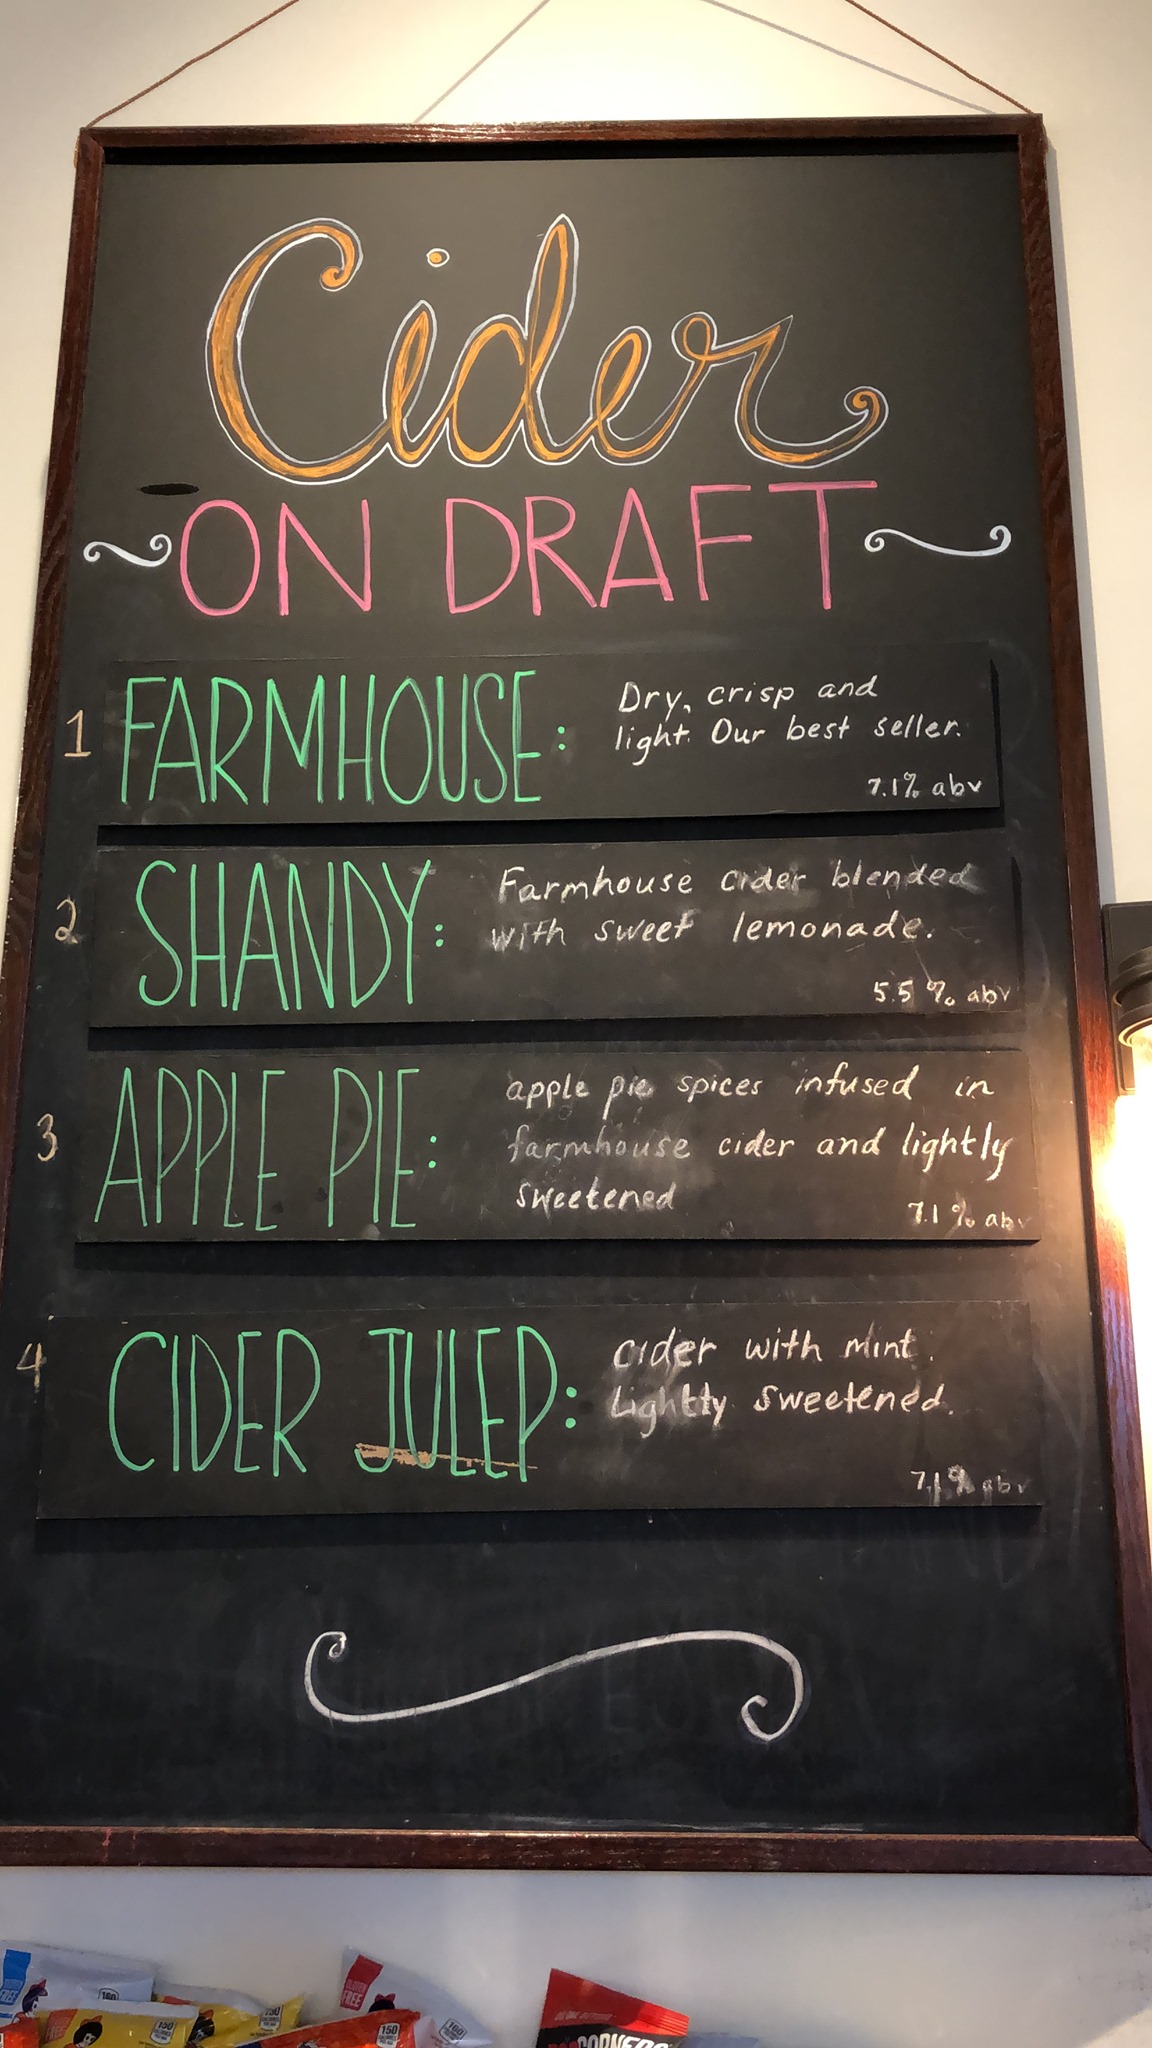 Cider
ON DRAFT
1 FARMHOUSE: Dry, crisp and
light. Our best seller.
7.1% abv
2 SHANDY: Farmhouse cider blended
with sweet lemonade.
5.5 % abv
3 APPLE PIE: apple pie spices infused in
farmhouse cider and lightly
sweetened
7.1 % abv
4 CIDER JULEP: cider with mint.
Lightly sweetened.
7.1% abv
FREE
160
FREE
150
150
GLUTEN
FREE
150
160
CORNERS